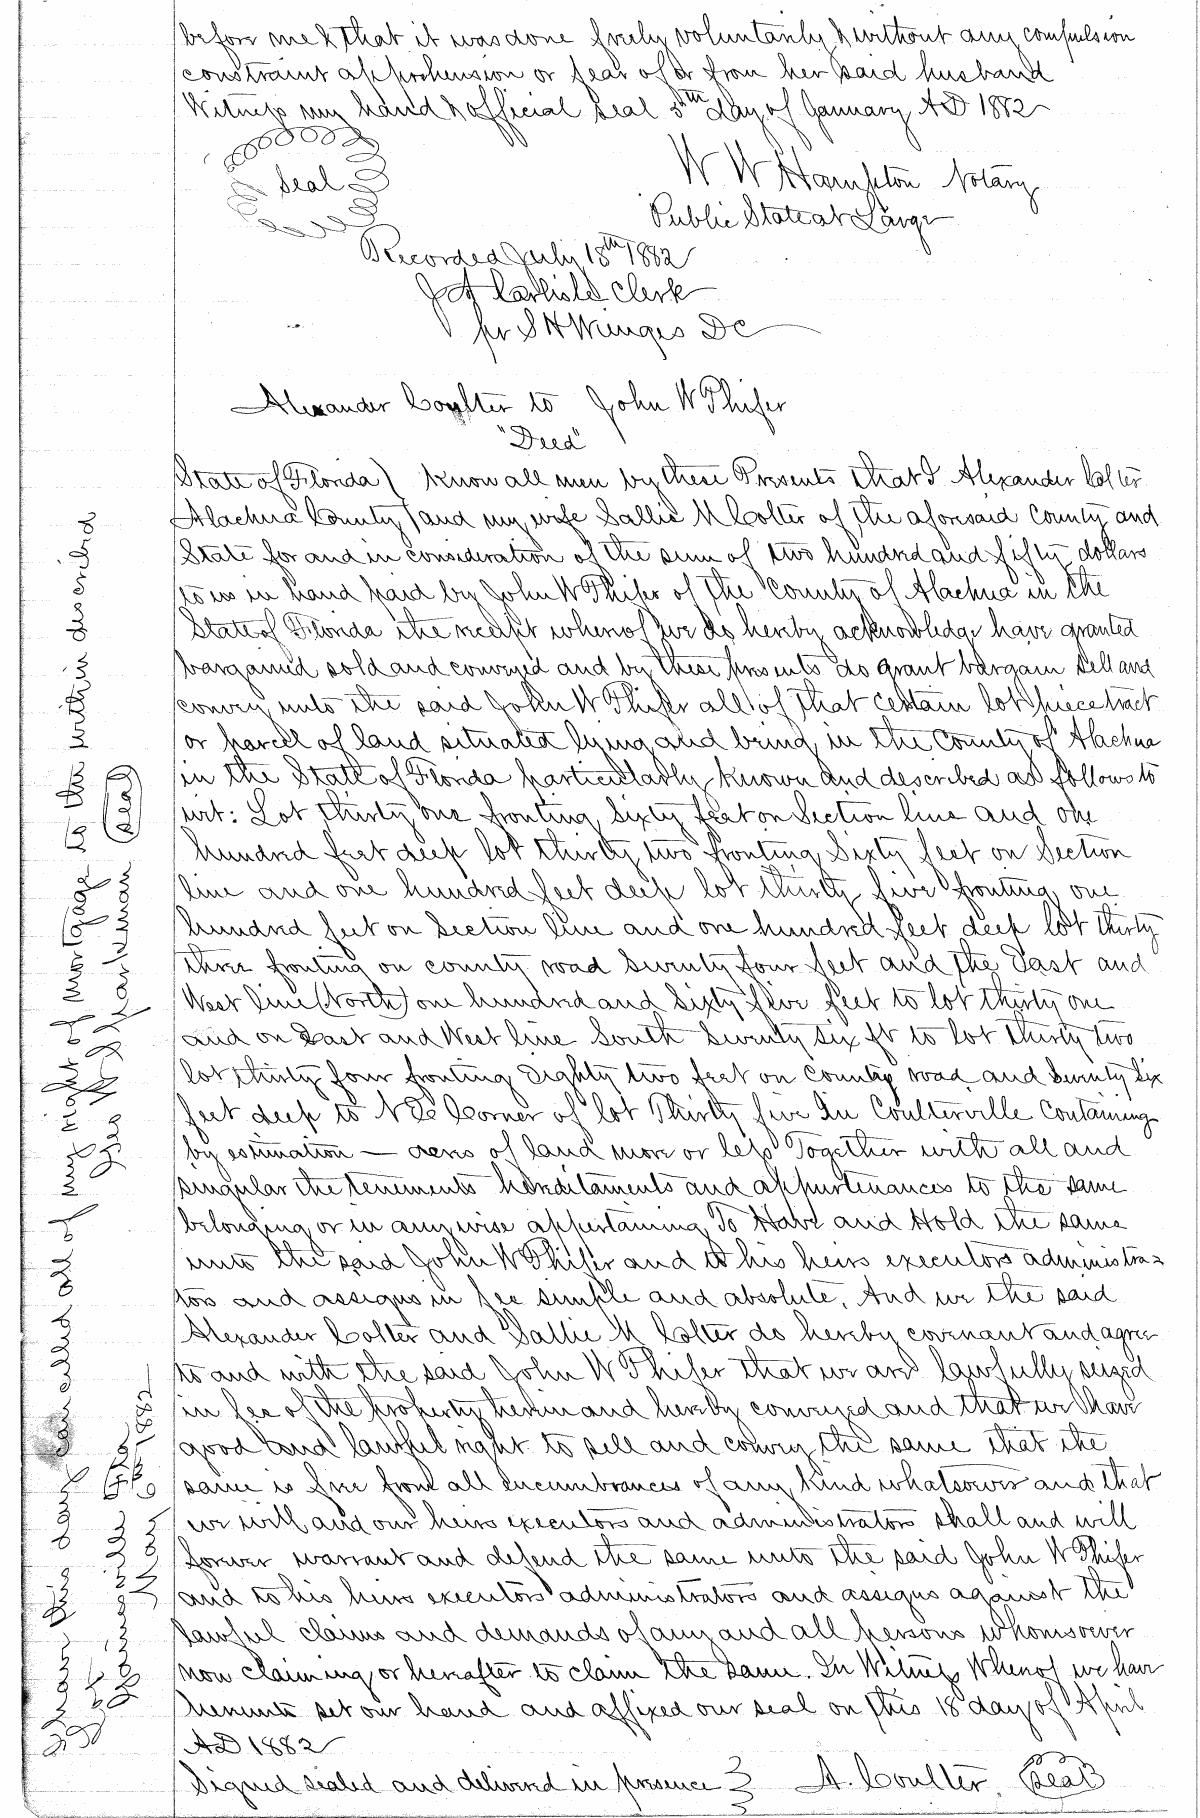 before me & that it was done freely voluntarily & without any compulsion
constraint apprehension or fear of or from her said husband
Witness my hand & official seal 5th day of January AD 1882
Seal
W W Hampton Notary
Public State at Large
Recorded July 18th 1882
J A Carlisle Clerk
pr S H Wienges DC
Alexander Coulter to John W Phifer
"Deed"
State of Florida ) Know all men by these Presents that I Alexander Colter
Alachua County ) and my wife Sallie M Colter of the aforesaid County and
State for and in consideration of the sum of two hundred and fifty dollars
to us in hand paid by John W Phifer of the County of Alachua in the
State of Florida the receipt whereof we do hereby acknowledge have granted
bargained sold and conveyed and by these presents do grant bargain sell and
convey unto the said John W Phifer all of that certain lot piece tract
or parcel of land situated lying and being in the County of Alachua
in the State of Florida particularly known and described as follows to
wit: Lot thirty one fronting sixty feet on Section line and one
hundred feet deep lot thirty two fronting Sixty feet on Section
line and one hundred feet deep lot thirty five fronting one
hundred feet on Section line and one hundred feet deep lot thirty
three fronting on county road seventy four feet and the East and
West line (North) one hundred and sixty five feet to lot thirty one
and on East and West line South seventy six ft to lot thirty two
lot thirty four fronting Eighty two feet on County road and seventy six
feet deep to N E Corner of lot Thirty five In Coulterville Containing
by estimation — acres of land more or less Together with all and
singular the tenements hereditaments and appurtenances to the same
belonging or in anywise appertaining To Have and Hold the same
unto the said John W Phifer and to his heirs executors administra=
tors and assigns in fee simple and absolute. And we the said
Alexander Colter and Sallie M Colter do hereby covenant and agree
to and with the said John W Phifer that we are lawfully seized
in fee of the property herein and hereby conveyed and that we have
good and lawful right to sell and convey the same that the
same is free from all encumbrances of any kind whatsoever and that
we will and our heirs executors and administrators shall and will
forever warrant and defend the same unto the said John W Phifer
and to his heirs executors administrators and assigns against the
lawful claims and demands of any and all persons whomsoever
now claiming or hereafter to claim the same. In Witness Whereof we have
hereunto set our hand and affixed our seal on this 18 day of April
AD 1882
Signed sealed and delivered in presence A. Coulter Seal